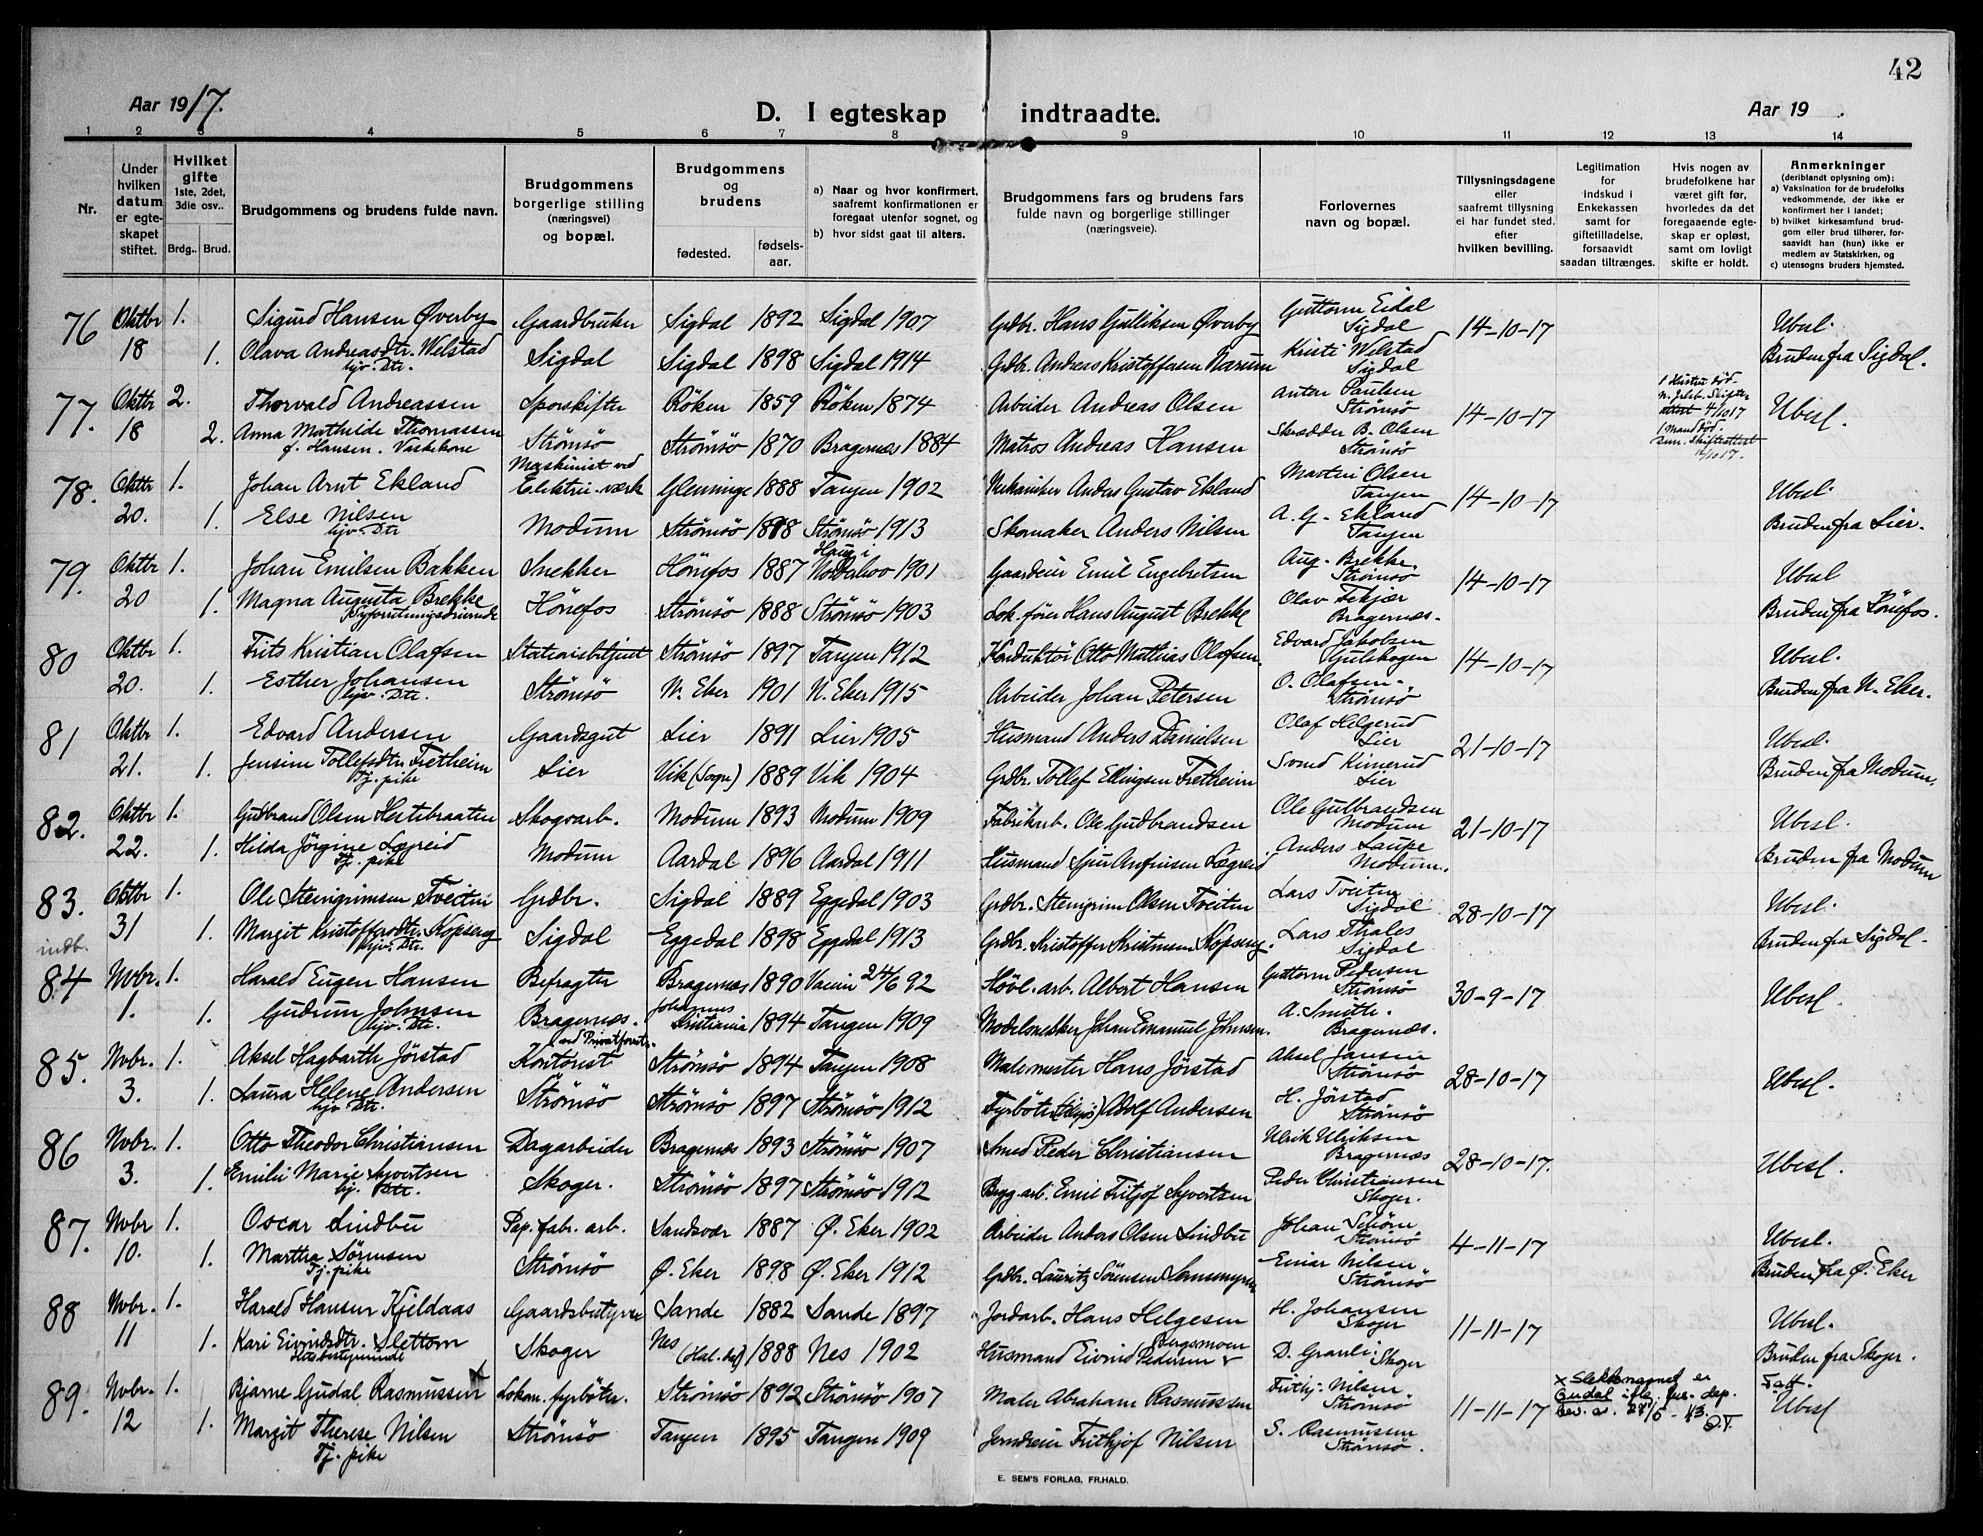 42
Aar 1917.
D. I egteskap indtraadte.
Aar 19 .
1 2 3 4 5 6 7 8 9 10 11 12 13 14
Nr.
Under hvilken datum er egteskapet stiftet.
Hvilket gifte 1ste, 2det, 3die osv..
Brdg.. Brud.
Brudgommens og brudens fulde navn.
Brudgommens borgerlige stilling (næringsvei) og bopæl.
Brudgommens og brudens
fødested.
fødsels-aar.
a) Naar og hvor konfirmert, saafremt konfirmationen er foregaat utenfor sognet, og
b) hvor sidst gaat til alters.
Brudgommens fars og brudens fars fulde navn og borgerlige stillinger (næringsveie).
Forlovernes navn og bopæl.
Tillysningsdagene eller saafremt tillysning ei har fundet sted, efter hvilken bevilling.
Legitimation for indskud i Enkekassen samt for giftetilladelse, forsaavidt saadan tiltrænges.
Hvis nogen av brudefolkene har været gift før, hvorledes da det foregaaende egteskap er opløst, samt om lovligt skifte er holdt.
Anmerkninger (deriblandt oplysning om):
a) Vaksination for de brudefolks vedkommende, der ikke er konfirmert her i landet;
b) hvilket kirkesamfund brudgom eller brud tilhører, forsaavidt han (hun) ikke er medlem av Statskirken, og
c) utensogns bruders hjemsted.
76 Oktbr 1. Sigurd Hansen Øverby Gaardbruker Sigdal 1892 Sigdal 1907 Grdbr. Hans Gulliksen Øverby Guttorm Eidal Sigdal 14-10-17 Ubesl.
18 1. Olava Andreasdtr. Welstad hjv. Dtr. Sigdal Sigdal 1898 Sigdal 1914 Grdbr. Andreas Kristoffersen Narum Kristi Welstad Sigdal Bruden fra Sigdal.
77. Oktbr 2. Thorvald Andreassen Sporskifter Röken 1859 Röken 1874 Arbeider Andreas Olsen Anton Paulsen Strömsö 14-10-17 1 Hustru död 4/10 17 Ubesl.
18 2. Anna Mathilde Thomassen f. Hansen. Vaskekone Strömsö Strömsö 1870 Bragernæs 1884 Matros Andreas Hansen Skrædder B. Olsen Strömsö 1 Mand död.
78. Oktbr 1. Johan Arnt Ekland Maskinist ved Elektric. værk Glemminge 1888 Tangen 1902 Mekaniker Anders Gustav Ekland Martin Olsen Tangen 14-10-17 Ubesl.
20. 1. Else Nilsen hjv. Dtr Modum Strömsö Strömsö 1913 Skomaker Anders Nilsen A. G. Ekland Tangen Bruden fra Lier.
79. Oktbr 1. Johan Emilsen Bakken Snekker Hönefos 1887 Haug i Norderhov 1901 Gaardeier Emil Engebretsen Aug. Brekke Strömsö 14-10-17 Ubesl
20 1. Magna Augusta Brekke Hönefos Strömsö 1888 Strömsö 1903 Lok. förer Hans August Brekke Olav Tekjær Bragernæs. Bruden fra Hönefos.
80 Oktbr 1. Frits Kristian Olafsen Stationsbetjent Strömsö 1897 Tangen 1912 Konduktör Otto Mathias Olafsen Edvard Jakobsen Gulskogen 14-10-17 Ubesl.
20. 1. Esther Johansen hjv. Dtr. Strömsö N. Eker 1901 N. Eker 1915 Arbeider Johan Petersen O. Olafsen Strömsö Bruden fra N. Eker.
81 Oktbr 1. Edvard Andersen Gaardsgut Lier 1891 Lier 1905 Husmand Anders Danielsen Olaf Helgerud Lier 21-10-17 Ubesl.
21. 1. Jensine Tollefsdtr. Fretheim Tj. pike Lier Vik (Sogn) 1889 Vik 1904 Grdbr. Tollef Ellingsen Fretheim Svend Kinnerud Lier Bruden fra Modum.
82. Oktbr 1. Gudbrand Olsen Hestebraaten Skogsarb. Modum 1893 Modum 1909 Fabrikarb. Ole Gudbrandsen Ole Gulbrandsen Modum 21-10-17 Ubesl.
22. 1. Hilda Jörgine Lægreid Tj. pike Modum Aardal 1896 Aardal 1911 Husmand Sjur Anfinsen Lægreid Anders Laupe Modum. Bruden fra Modum
83. Oktbr 1. Ole Steingrimsen Tveiten Grdbr. Sigdal 1889 Eggedal 1903 Grdbr. Steingrim Olsen Tveiten Lars Tveiten Sigdal 28-10-17 Ubesl.
indb. 31 1. Margit Kristoffersdtr. Kopseng hjv. Dtr. Sigdal Eggedal 1898 Eggedal 1913 Grdbr. Kristoffer Kristensen Kopseng. Lars Thales Sigdal Bruden fra Sigdal.
84 Nvbr. 1. Harald Eugen Hansen Befragter Bragernæs 1890 24/6 92 Hövl. arb. Albert Hansen Guttorm Pedersen Strömsö 30-9-17 Ubesl.
1. 1. Gudrun Johnsen hjv. Dtr. Bragernæs. Johannes Kristiania 1894 Tangen 1909 Modelsnekker Johan Emanuel Johnsen. A. Smitte. Bragernæs.
85. Nvbr. 1. Aksel Hagbarth Jörstad Kontorist Strömsö 1894 Tangen 1908 Malermester Hans Jörstad Aksel Jansen Strömsö 28-10-17 Ubesl.
3. 1. Laura Helene Andersen hjv. Dtr. Strömsö Strömsö 1897 Strömsö 1912 Fyrböter Adolf Andersen H. Jörstad Strömsö
86 Nvbr. 1. Otto Theodor Christiansen Dagarbeider Bragernæs 1893 Strömsö 1907 Smed Peder Christiansen Ulrik Ulriksen Bragernæs 28-10-17. Ubesl.
3. 1. Emilie Marie Syvertsen hj. Dtr. Skoger. Strömsö 1897 Strömsö 1912 Bryg. arb. Emil Fritjof Syvertsen Peder Christiansen Skoger.
87. Nvbr 1. Oscar Lindbu Pap. fabr. arb. Sandsvær 1887 Ø. Eker 1902 Arbeider Anders Olsen Lindbu Johan Schöne Strömsö 4-11-17 Ubesl.
10. 1. Martha Sörensen Tj. pike Strömsö Ø. Eker 1898 Ø. Eker 1912 Grdbr. Lauritz Sörensen Einar Nilsen Strömsö Bruden fra Ø. Eker
88 Nvbr. 1. Harald Hansen Kjeldaas Gaardsbestyrer Sande 1882 Sande 1897 Jordarb. Hans Helgesen H. Johansen Skoger 11-11-17 Ubesl.
11 1. Kari Eivindsdtr. Slettom Husbestyrerinde Skoger Nes (Hal. dal) 1888 Nes 1902 Husmand Eivind Pedersen Bergsmoen D. Granli Skoger Bruden fra Skoger.
89. Nvbr. 1. Bjarne Gudal Rasmussen x Lokom. fyrböter. Strömsö 1892 Strömsö 1907 Maler Abraham Rasmussen Frithj. Nilsen Strömsö 11-11-17 x Slektsnavnet er Gudal ifls. Jus. dep. bev. av 24/5 - 43. O.T. Fatt. Ubesl
12 1. Margit Therese Nilsen Tj. pike Strömsö Tangen 1895 Tangen 1909 Jerndreier Frithjof Nilsen S. Rasmussen Strömsö.
E. SEM'S FORLAG, FR.HALD.